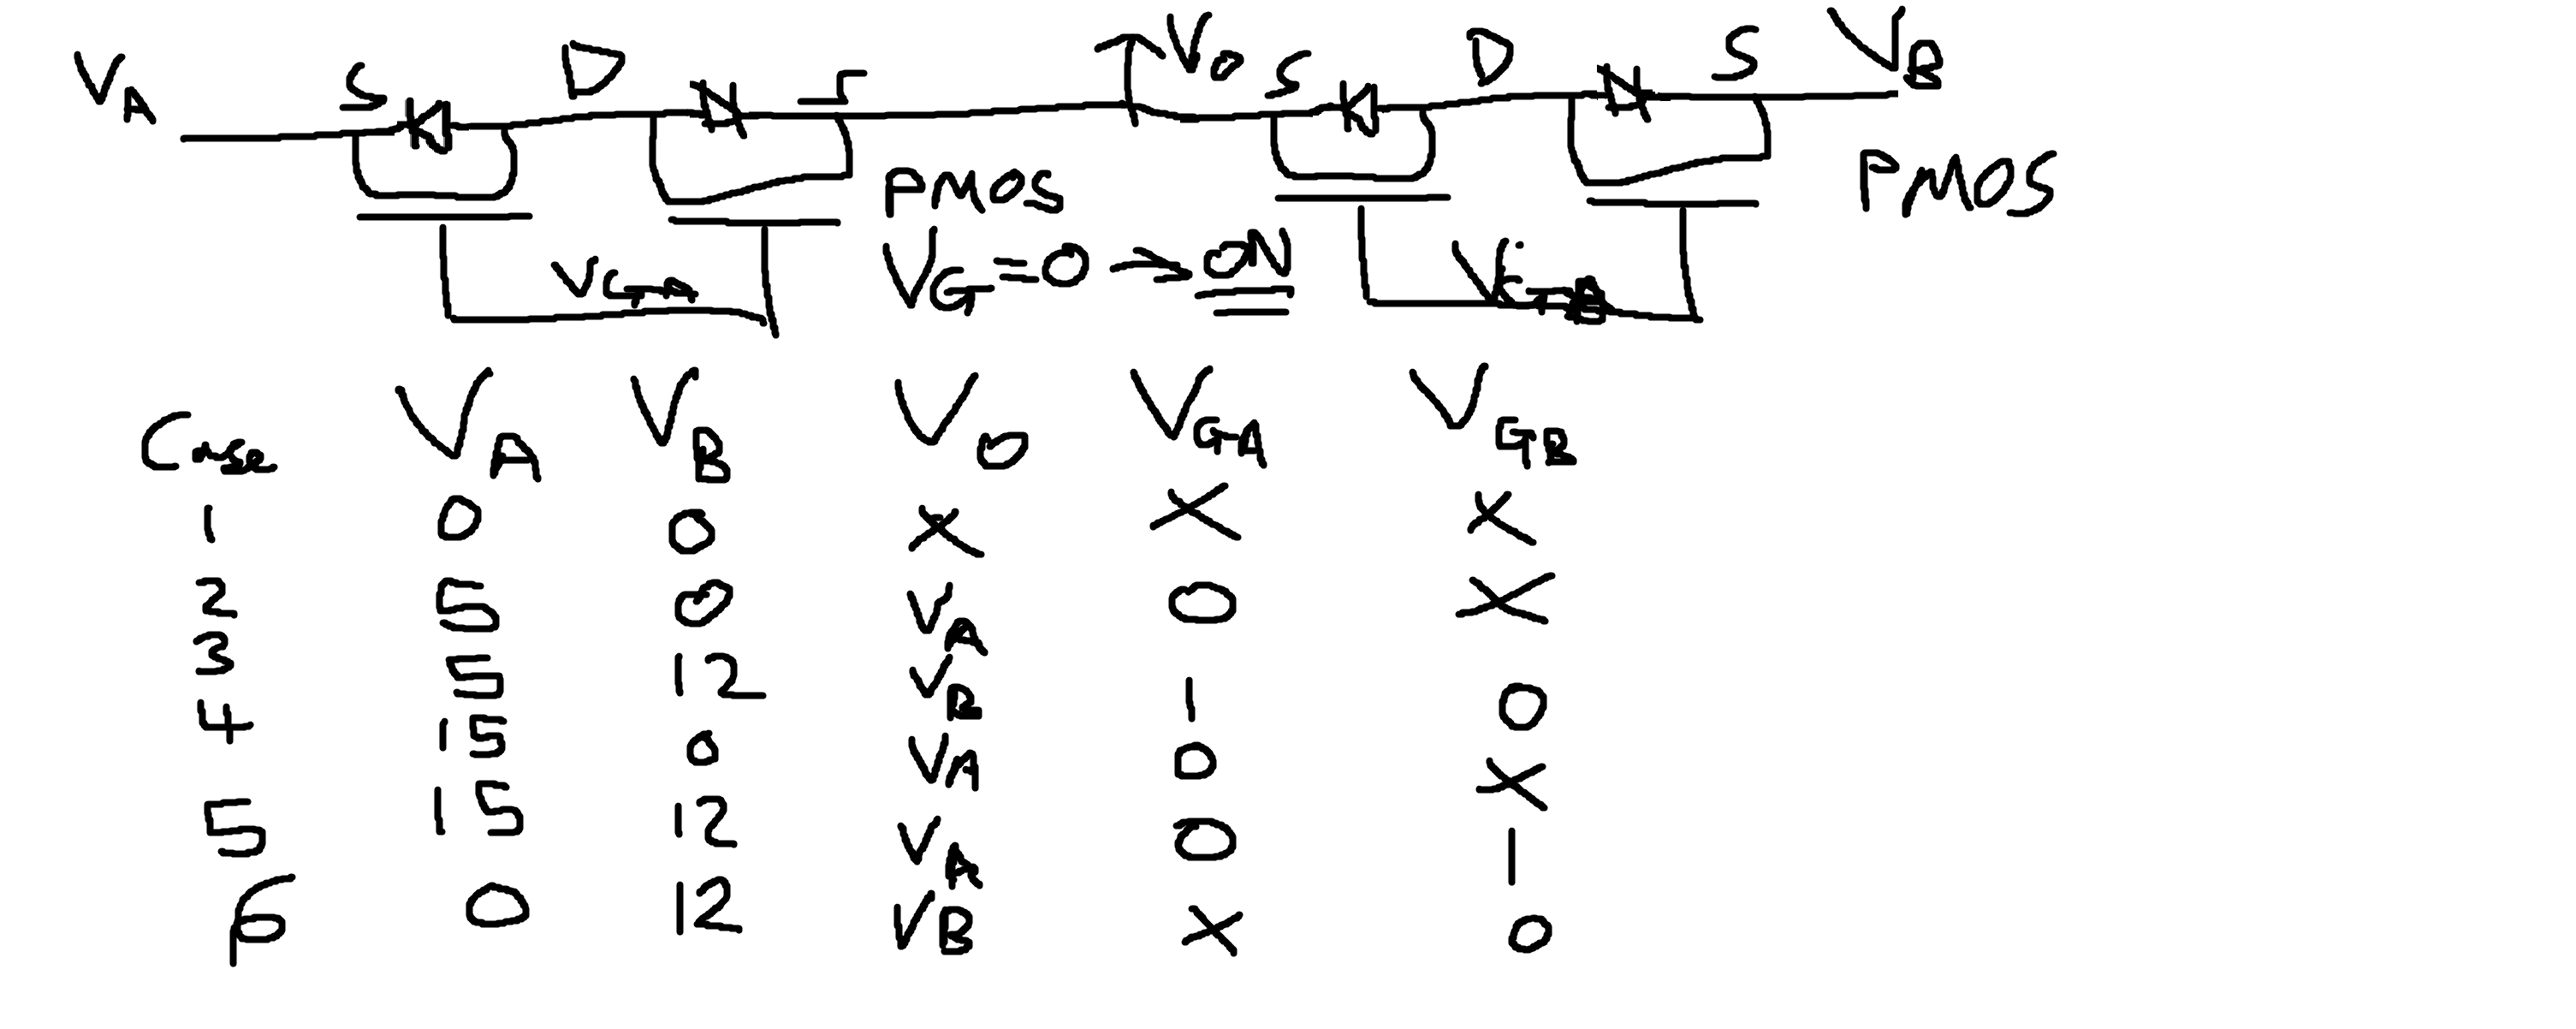 V_A S D S V_O S D S V_B
PMOS PMOS
V_GA V_G=0 → ON V_GB
Case V_A V_B V_O V_GA V_GB
1 0 0 X X X
2 5 0 V_A 0 X
3 5 12 V_B 1 0
4 15 0 V_A 0 X
5 15 12 V_A 0 1
6 0 12 V_B X 0